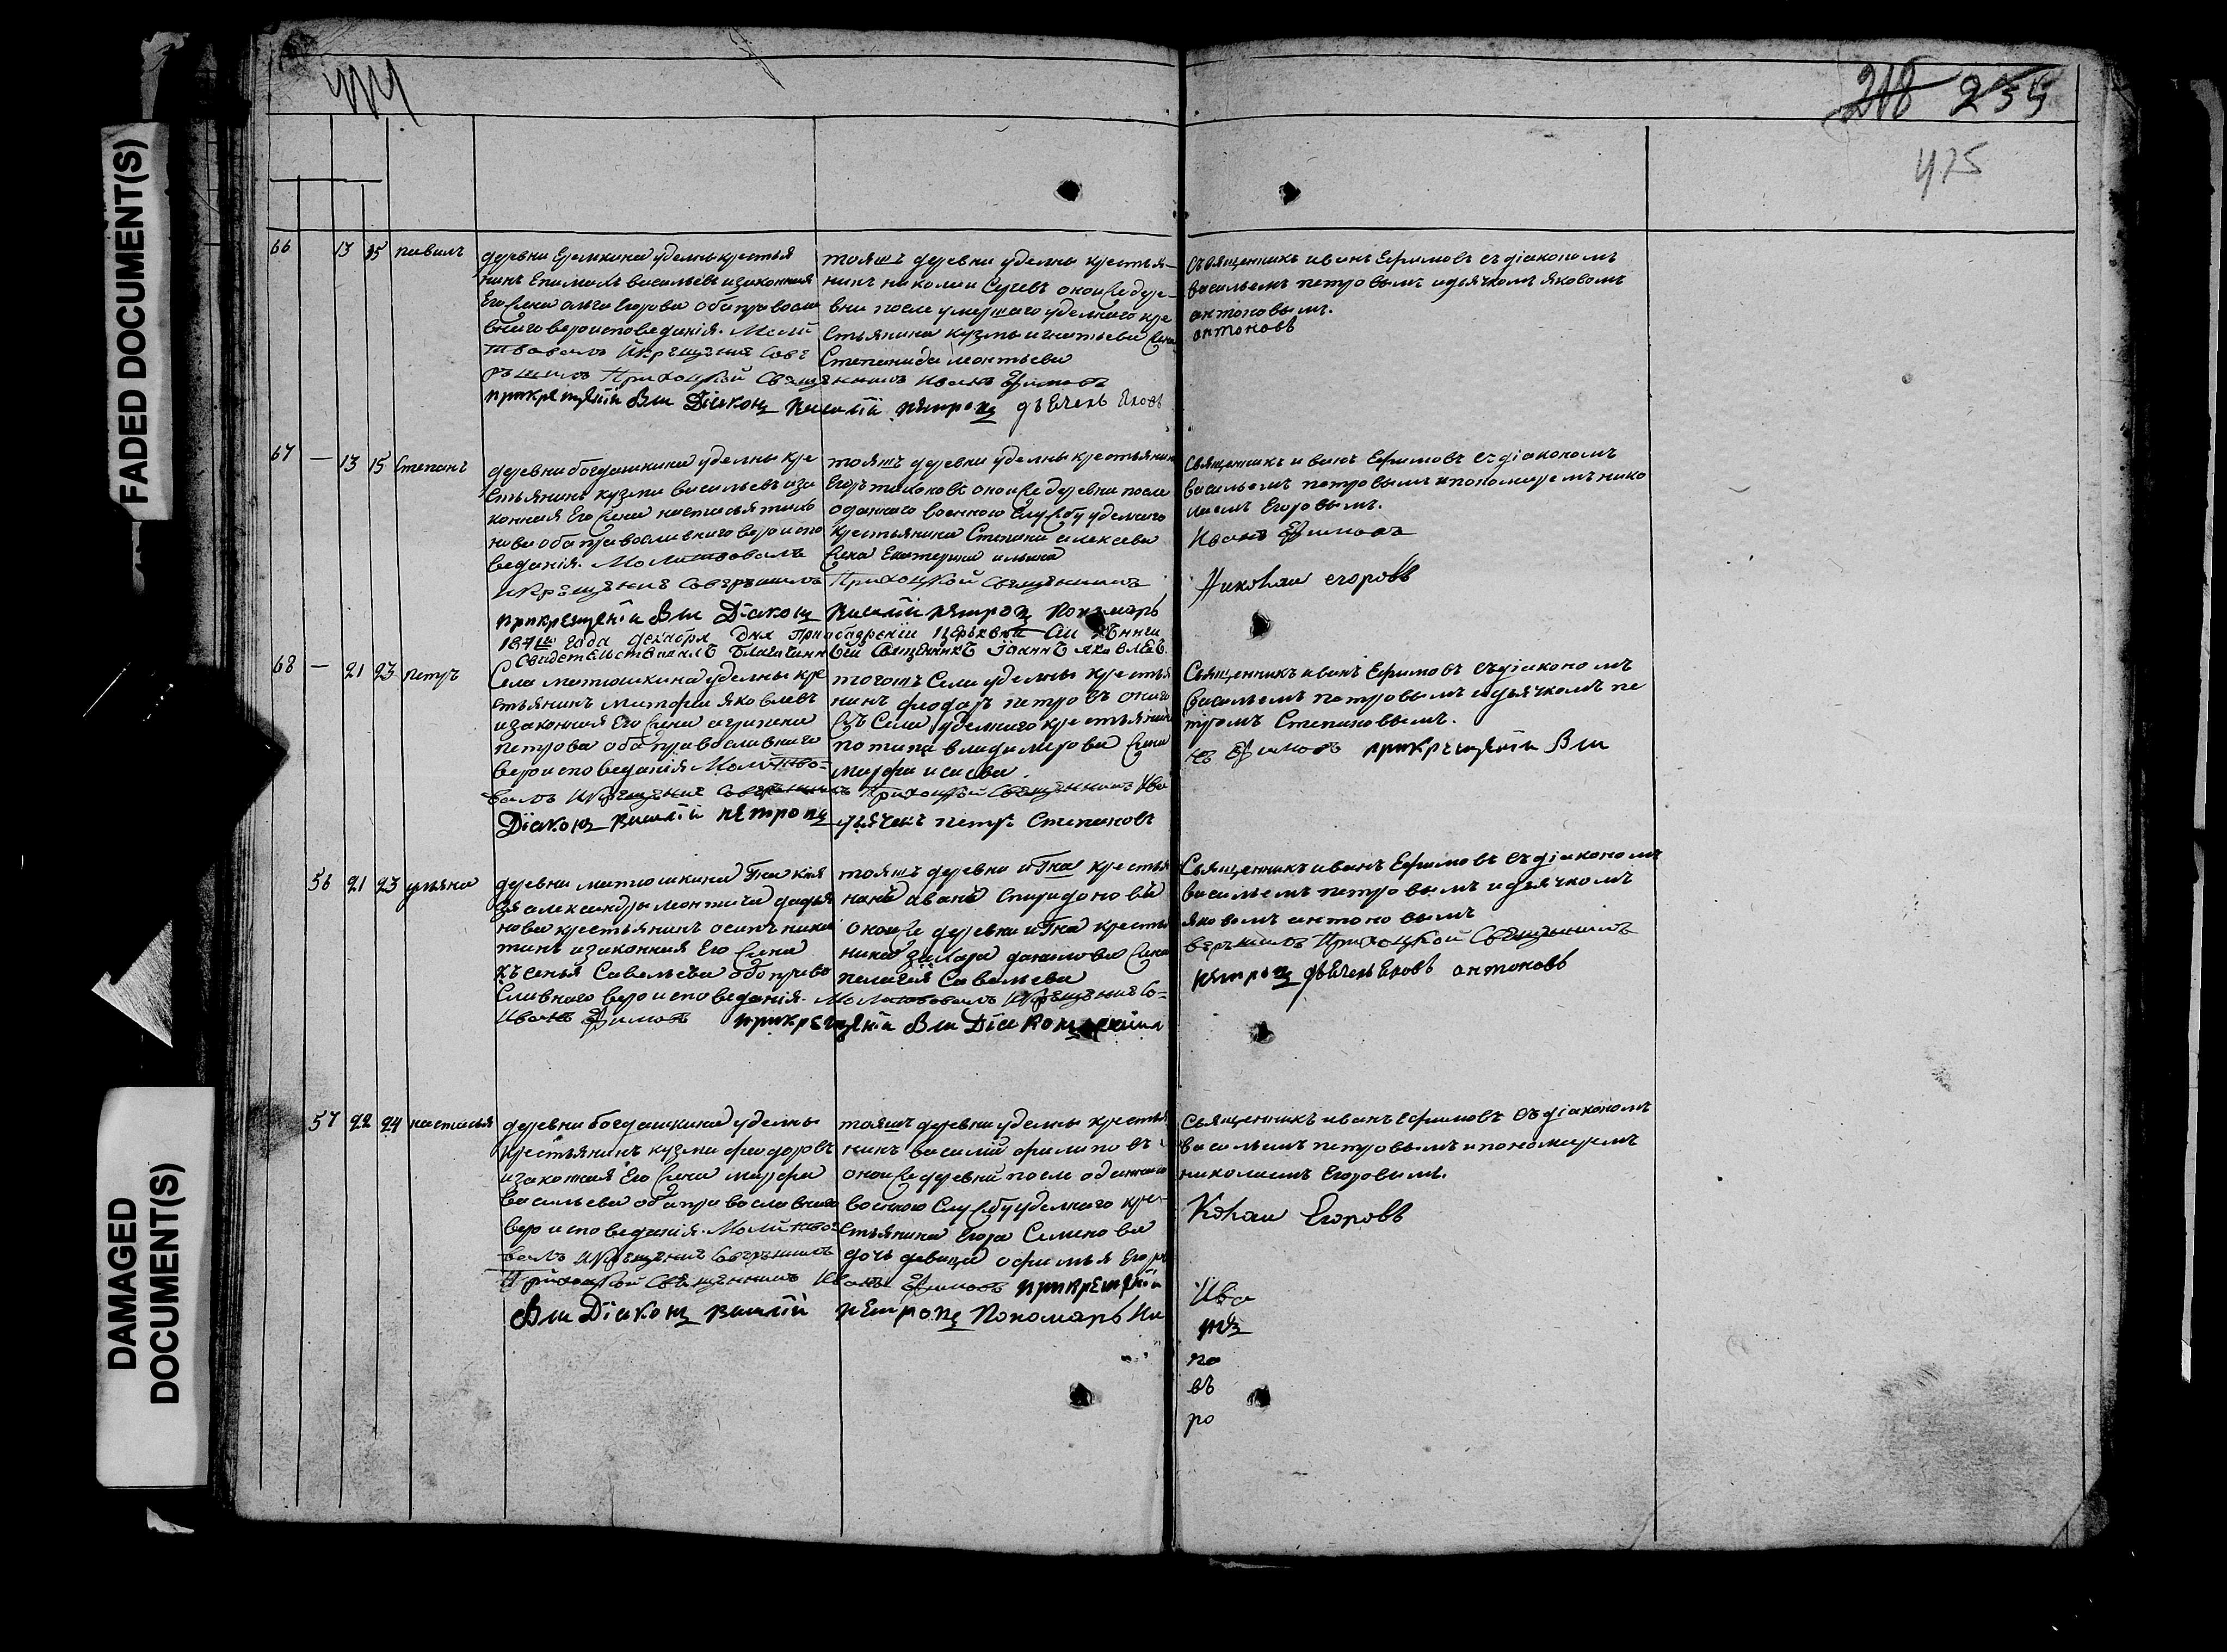 FADED DOCUMENT(S)
DAMAGED DOCUMENT(S)
218 235
475
66 13 15 павилъ
деревни Еремкина уделны крестья
нинъ Епималъ васильевъ изаконная
Его Cена анна Егорова оба правосла
внаго вероисповеданія. Моли
твовалъ Икрещение Сове
ршилъ Приходской Священникъ Иванъ Ефимовъ
прикрещеніи был Діаконъ василій петровъ дьЕчекъ Яковъ
тояшъ деревни уделны крестья-
нинъ николаи Сергевъ оной Cе дере-
вни после умершаго уделнаго кре
стьянина кузмы игнатьева Cена
Степанида леонтьева
Священникъ иванъ Ефимовъ съдіакономъ
васильемъ петровымъ идьячкомъ яковомъ
антоновымъ.
антоновъ
67 — 13 15 Степанъ
деревни богдашкина уделны кре
стьянинъ кузма васильевъ иза
конная Его Cена настасья тихо
нова оба православнаго вероиспо
веданія. Молитвовалъ
Икрещение Совершилъ Приходской Священникъ
прикрещеніи был Діаконъ василій петровъ Пономарь
тояшъ деревни уделны крестьянин
Егоръ тихоновъ оной Cе деревни после
оданнаго военною службу уделнаго
крестьянина Степана алексева
Cена Екатерина ильина
Священникъ иванъ Ефимовъ съдіакономъ
васильемъ петровымъ ипономаремъ нико
лаемъ Егоровымъ.
Иванъ Ефимовъ
Николаи егоровъ
года декабря дня При обозреніи церквей Сии Книги
Свидетельствовалъ Благочинный Священникъ Іоаннъ Яковлевъ.
68 — 21 23 петръ
Села матюшкина уделны кре
стьянинъ митрофан яковлевъ
изаконная Его Cена агрипена
петрова оба православнаго
вероисповеданія Молитво=
валъ Икрещение Совершилъ Приходской Священникъ Ива
Діаконъ василій петровъ дьячекъ петръ Степановъ
тогошъ Села уделны крестья
нинъ феодоръ петровъ онаго
Cъ Села уделнаго крестьянина
потапа владимерова Cена
марфа исаева.
Священникъ иванъ Ефимовъ съдіакономъ
васильемъ петровымъ идьячкомъ пе
тромъ Степановымъ.
нъ Ефимовъ прикрещеніи был
56 21 23 ульяна
деревни матюшкина Гна Кня
зя александра леонтича дадья
нова крестьянинъ осипъ ники
тинъ изаконная Его Cена
къСенья Савельева оба право
славнаго вероисповеданія. Молитвовалъ Икрещение Со=
Иванъ Ефимовъ прикрещеніи был Діаконъ василій
тояшъ деревни иГна крестья
нинъ иванъ Спиридоновъ
оной Cе деревни иГна крестья
нина захара данилова Cена
пелагея Савельева
Священникъ иванъ Ефимовъ съдіакономъ
васильемъ петровымъ идьячкомъ
яковомъ антоновымъ
вершилъ Приходской Священникъ
петровъ дьЕчекъ Яковъ антоновъ
57 22 24 настасья
деревни богдашкина уделны
крестьянинъ кузма феодоровъ
изаконная Его Cена марфа
васильева оба православнаго
вероисповеданія. Молитво=
валъ Икрещение Совершилъ
Приходской Священникъ Иванъ Ефимовъ прикрещеніи
был Діаконъ василій петровъ Пономарь Ни
тояшъ деревни уделны крестья
нинъ василій филиповъ
оной Cе деревни после оданнаго
военною Службу уделнаго кре-
стьянина Егора Семенова
дочь девица офимья Егоро
Священникъ иванъ Ефимовъ съдіакономъ
васильемъ петровымъ ипономаремъ
николаемъ Егоровымъ.
Колаи Егоровъ
Ива
по
въ
ро